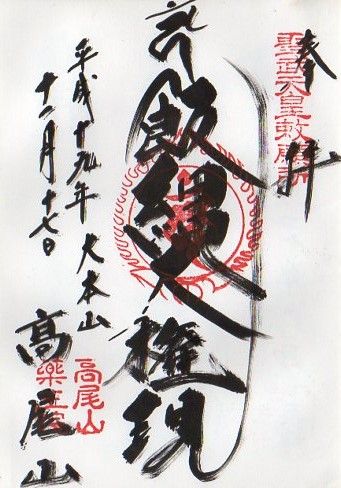 奉拝
聖武天皇敕願所
飯縄大権現
平成十九年十二月十七日
大本山
高尾山
高尾山
薬王院